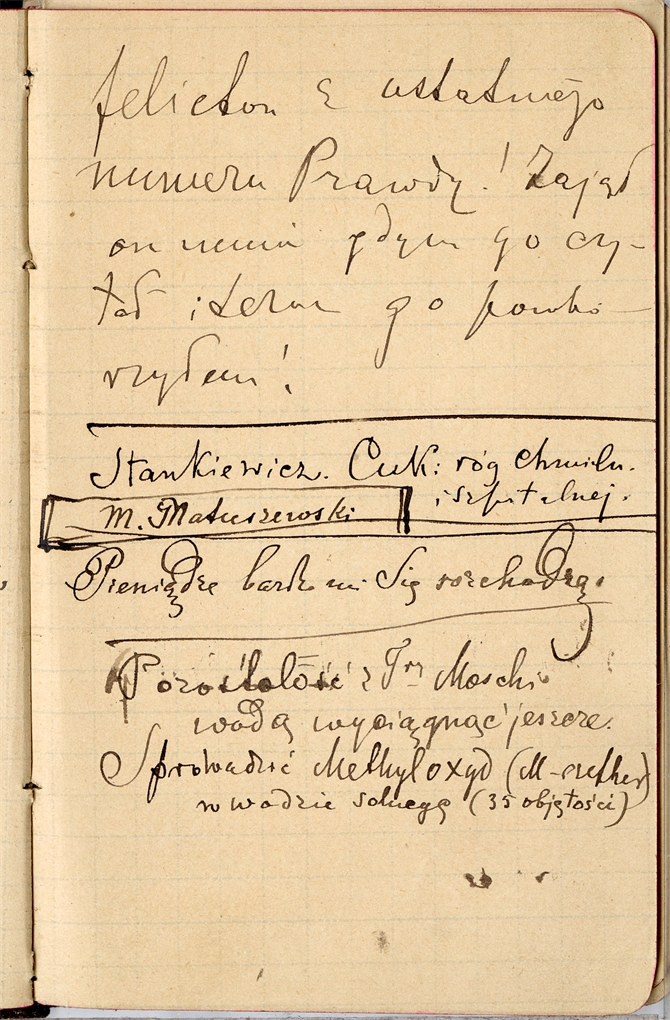 felieton z ostatniego
numeru Prawdy! Zajął
on mnie gdym go czy-
tał i teraz go powtó-
rzyłem!
Stankiewicz. Cuk: róg Chmieln.
i szpitalnej.
M. Matuszewski
Pieniądze bardz mi się rozchodzą.
Pozostałość z Tra Moschi
wodą wyciągnąć jeszcze.
Sprowadzić Methyloxyd (M-aether)
w wodzie solnego (35 objętości)